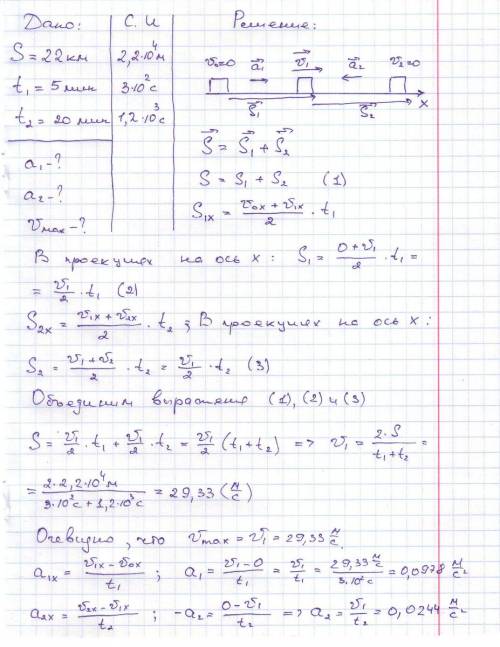 Дано: С. И Решение:
S = 22 км 2,2·10⁴ м v₀=0 a⃗₁ v⃗₁ a⃗₂ v₂=0
t₁ = 5 мин 3·10² с
t₂ = 20 мин 1,2·10³ с S⃗₁ S⃗₂ x
a₁ - ? S⃗ = S⃗₁ + S⃗₂
a₂ - ? S = S₁ + S₂ (1)
vмах - ? S₁ₓ = (v₀ₓ + v₁ₓ)/2 · t₁
В проекциях на ось x: S₁ = (0 + v₁)/2 · t₁ =
= v₁/2 · t₁ (2)
S₂ₓ = (v₁ₓ + v₂ₓ)/2 · t₂; В проекциях на ось x:
S₂ = (v₁ + v₂)/2 · t₂ = v₁/2 · t₂ (3)
Объединим выражения (1), (2) и (3)
S = v₁/2 · t₁ + v₁/2 · t₂ = v₁/2 (t₁ + t₂) => v₁ = 2·S/(t₁ + t₂) =
= 2·2,2·10⁴ м/(3·10² с + 1,2·10³ с) = 29,33 (м/с)
Очевидно, что vмах = v₁ = 29,33 м/с.
a₁ₓ = (v₁ₓ - v₀ₓ)/t₁ ; a₁ = (v₁ - 0)/t₁ = v₁/t₁ = 29,33 м/с/3·10² с = 0,0978 м/с²
a₂ₓ = (v₂ₓ - v₁ₓ)/t₂ ; -a₂ = (0 - v₁)/t₂ => a₂ = v₁/t₂ = 0,0244 м/с²